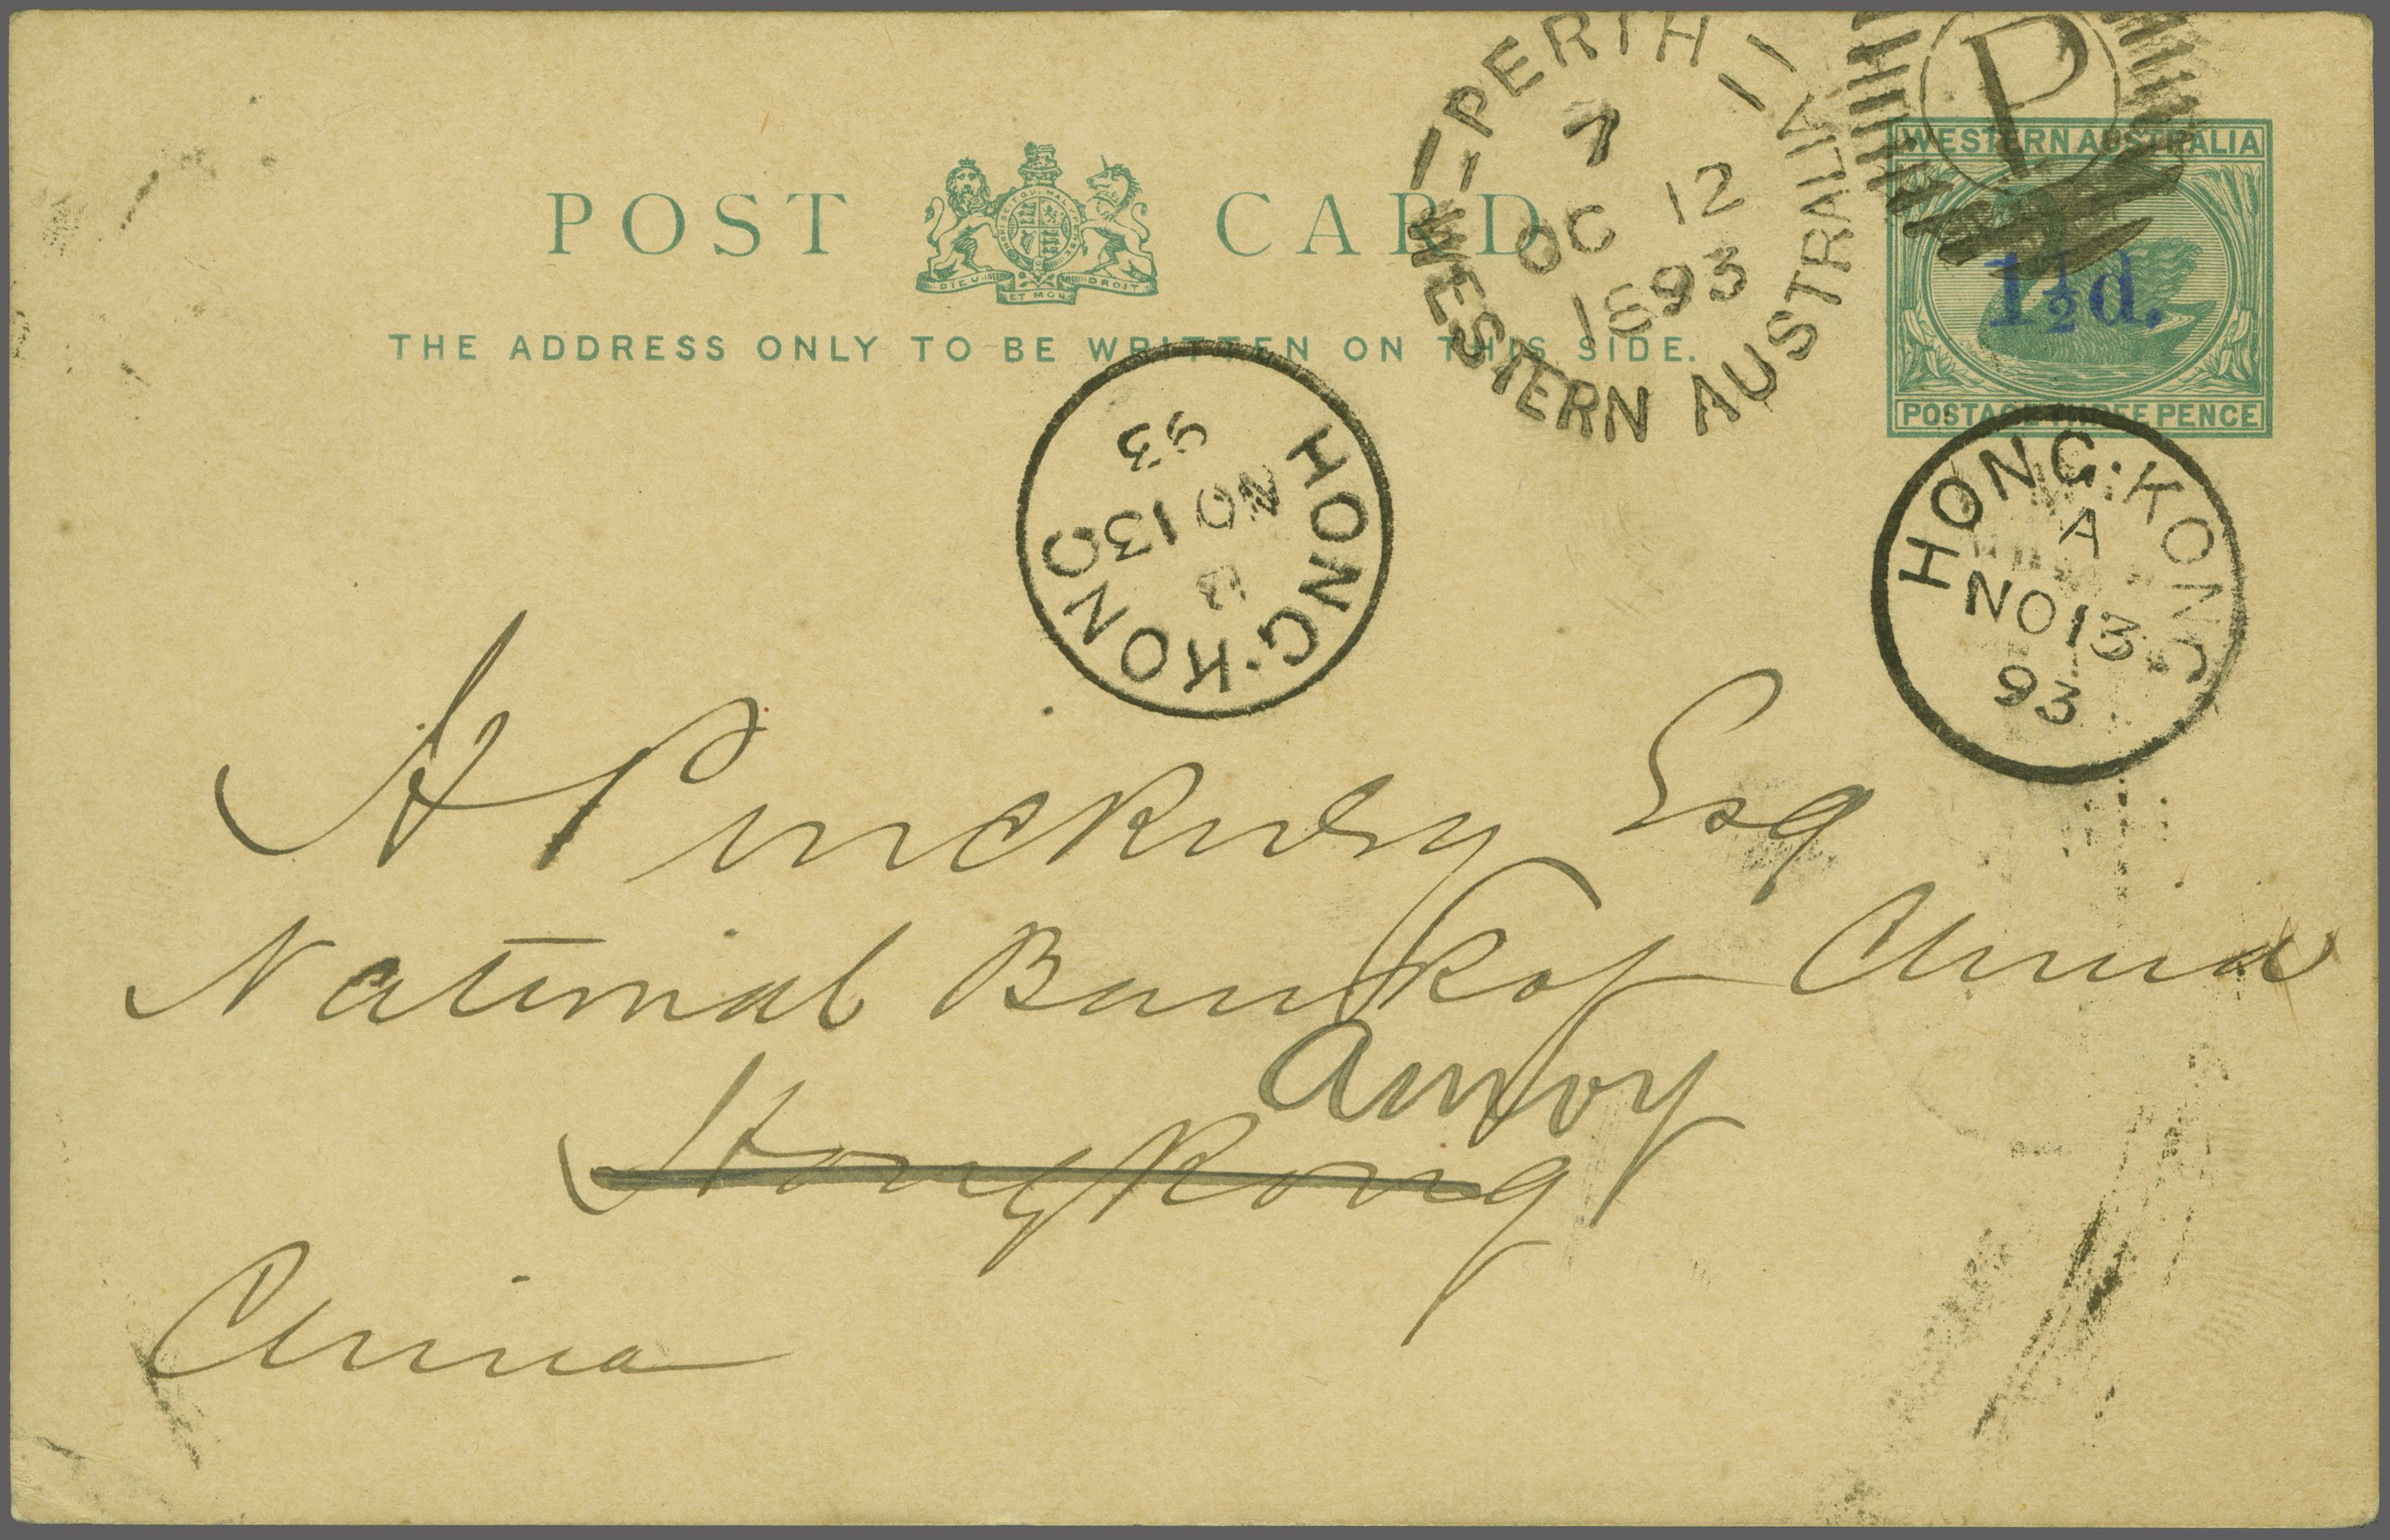 POST CARD
DIEU ET MON DROIT
THE ADDRESS ONLY TO BE WRITTEN ON THIS SIDE.
PERTH
7 11
OC 12
1893
WESTERN AUSTRALIA
P
WESTERN AUSTRALIA
1½d.
POSTAGE THREE PENCE
HONG·KONG
A
NO 13
93
HONG·KONG
B
NO 13
93
A Esq
National Bank of China
Amoy
Hongkong
China